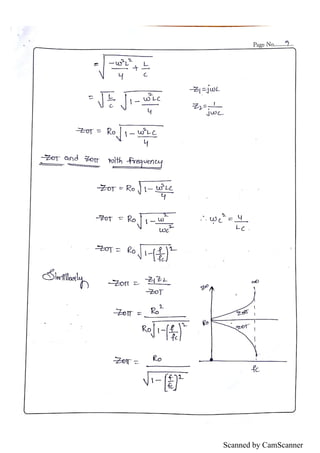 Page No. 9
= √(-ω²L²/4 + L/C)
= √(L/C) √(1 - ω²LC/4)
Z₁ = jωL
Z₂ = 1/jωC
Z₀T = R₀ √(1 - ω²LC/4)
Z₀T and Z₀π with frequency
Z₀T = R₀ √(1 - ω²LC/4)
Z₀T = R₀ √(1 - ω²/ωc²) ∴ ωc² = 4/LC
Z₀T = R₀ √(1 - (f/fc)²)
Similarly Z₀π = Z₁Z₂/Z₀T
Z₀π = R₀²/(R₀ √(1 - (f/fc)²))
Z₀π = R₀/√(1 - (f/fc)²)
∞
R₀
Z₀π
Z₀T
fc
Scanned by CamScanner